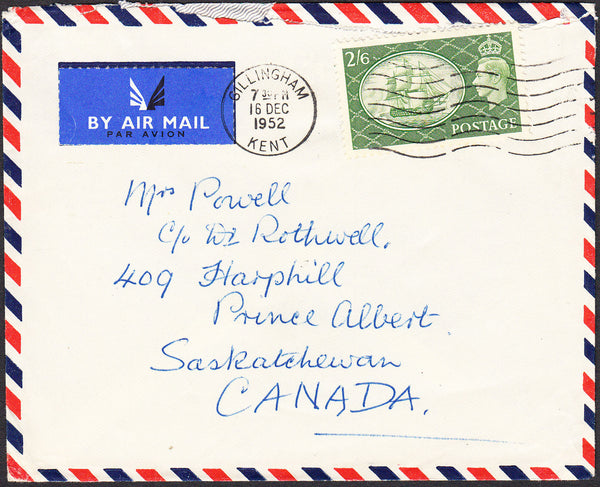 2/6
POSTAGE
GILLINGHAM
7 30 PM
16 DEC
1952
KENT
BY AIR MAIL
PAR AVION
Mrs Powell
c/o Dr Rothwell,
409 Harphill
Prince Albert
Saskatchewan
CANADA.